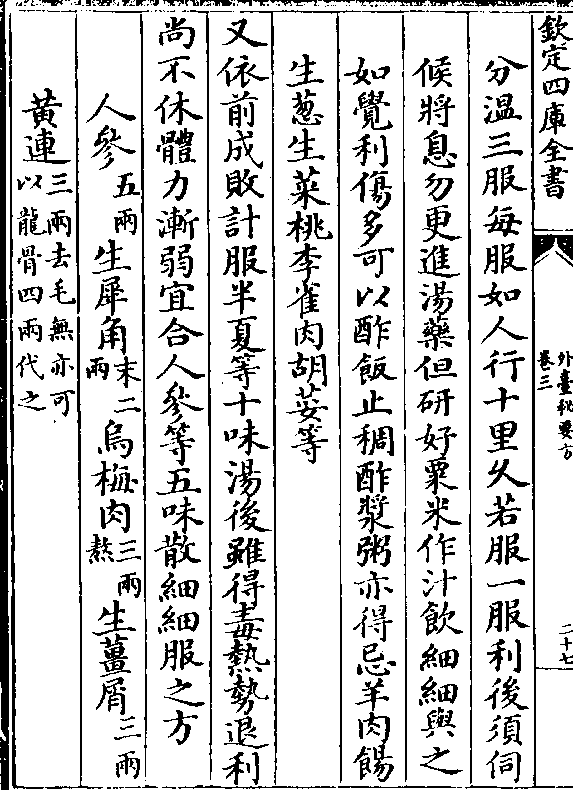 欽定四庫全書
外臺秘要方
卷三
二十七
分溫三服每服如人行十里久若服一服利後須伺
候將息勿更進湯藥但研好粟米作汁飲細細與之
如覺利傷多可以酢飯止稠酢漿粥亦得忌羊肉餳
生葱生菜桃李雀肉胡荽等
又依前成敗計服半夏等十味湯後雖得毒熱勢退利
尚不休體力漸弱宜合人參等五味散細細服之方
人參五兩 生犀角末二兩 烏梅肉三兩熬 生薑屑三兩
黃連三兩去毛無亦可以龍骨四兩代之